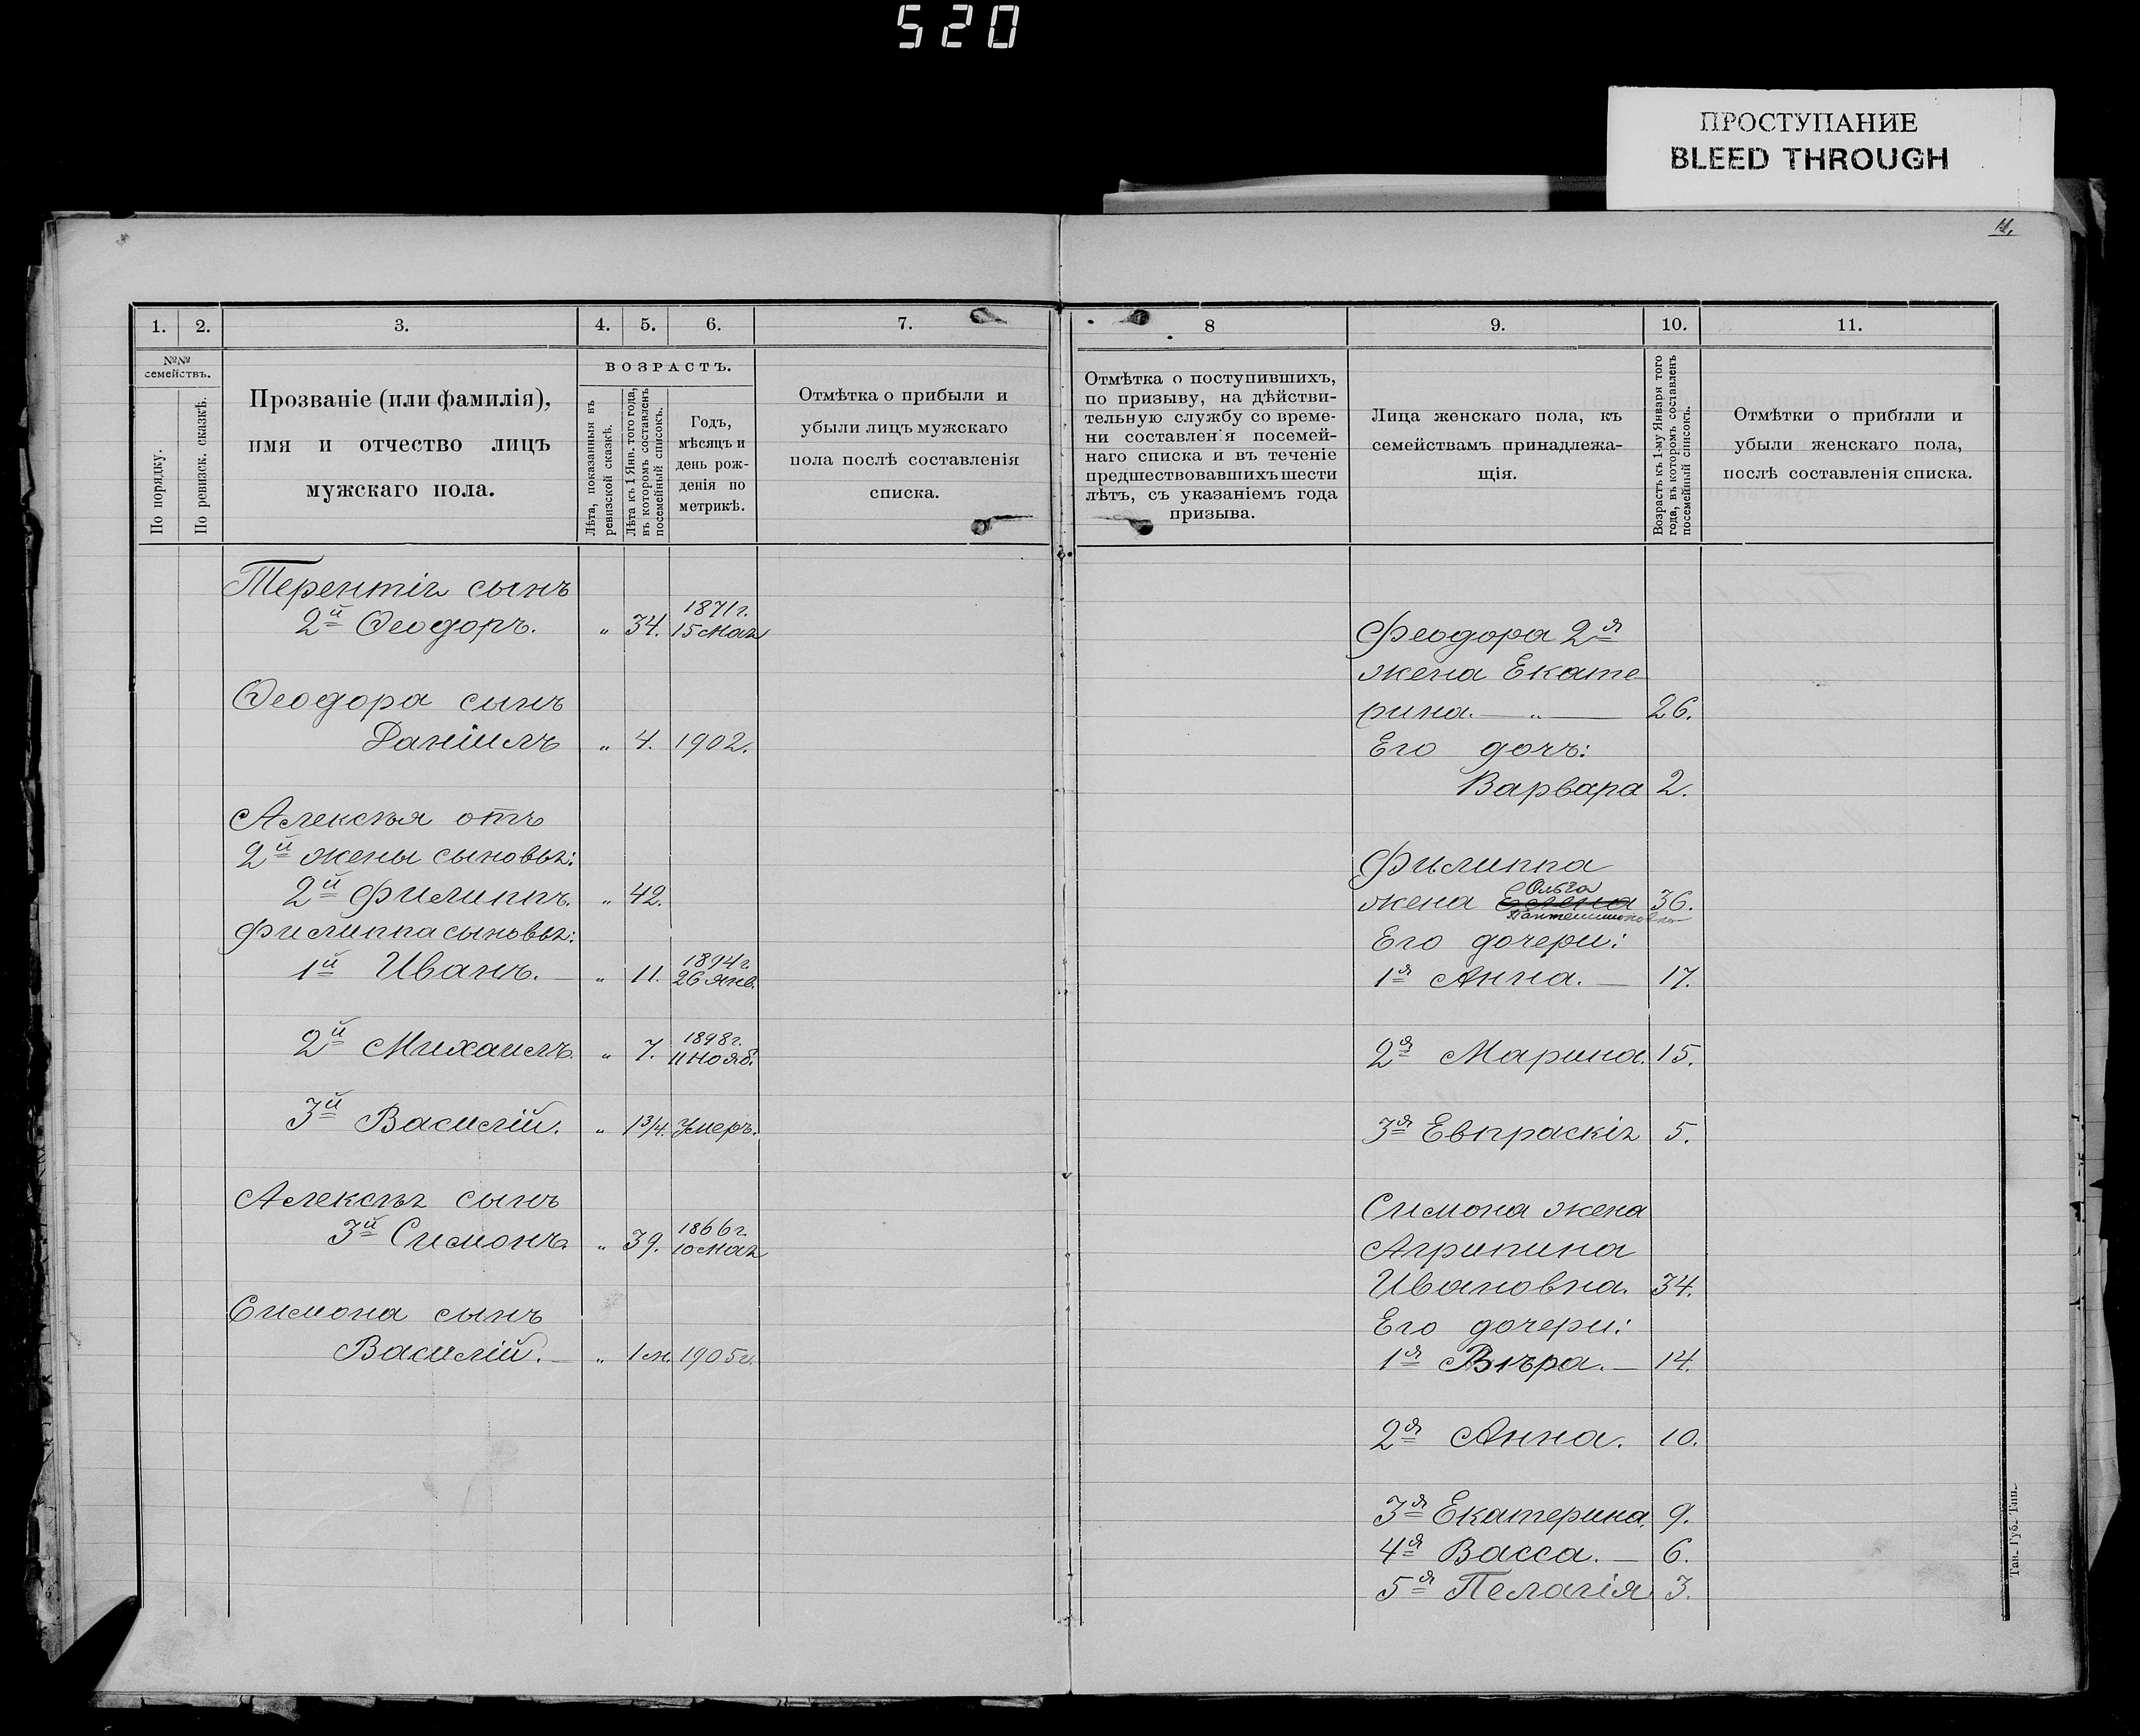 520
ПРОСТУПАНИЕ
BLEED THROUGH
1. 2. 3. 4. 5. 6. 7.
№№ семействъ.
По порядку.
По ревизск. сказкѣ.
Прозваніе (или фамилія),
имя и отчество лицъ
мужскаго пола.
ВОЗРАСТЪ.
Лѣта, показанныя въ
ревизской сказкѣ.
Лѣта къ 1 Янв. того года,
въ которомъ составленъ
посемейный списокъ.
Годъ,
мѣсяцъ и
день рож-
денія по
метрикѣ.
Отмѣтка о прибыли и
убыли лицъ мужскаго
пола послѣ составленія
списка.
Терентія сынъ
2й Ѳеодоръ. " 34. 1871г. 15 Мая
Ѳеодора сынъ
Даніилъ " 4. 1902.
Алексѣя отъ
2й жены сыновья:
2й Филиппъ. " 42.
Филиппа сыновья:
1й Иванъ. " 11. 1894г. 26 Янв.
2й Михаилъ. " 7. 1898г. 11 Нояб.
3й Василій. " 1 3/4. Умеръ.
Алексѣя сынъ
3й Симонъ. " 39. 1866г. 10 Мая
Симона сынъ
Василій. " 1 м. 1905г.
8 9. 10. 11.
Отмѣтка о поступившихъ,
по призыву, на дѣйстви-
тельную службу со време-
ни составленія посемей-
наго списка и въ теченіе
предшествовавшихъ шести
лѣтъ, съ указаніемъ года
призыва.
Лица женскаго пола, къ
семействамъ принадлежа-
щія.
Возрастъ къ 1-му Января того
года, въ которомъ составленъ
посемейный списокъ.
Отмѣтки о прибыли и
убыли женскаго пола,
послѣ составленія списка.
Феодора 2я
жена Екате
рина. — " — 26.
Его дочь:
Варвара 2.
Филиппа
Ольга
жена Елена 36.
Пантелимоновна
Его дочери:
1я Анна. — 17.
2я Марина. 15.
3я Евпраскія 5.
Симона жена
Агрипина
Ивановна. 34.
Его дочери:
1я Вѣра. — 14.
2я Анна. 10.
3я Екатерина. 9.
4я Васса. — 6.
5я Пелагія 3.
Тап. Губ. Тип.